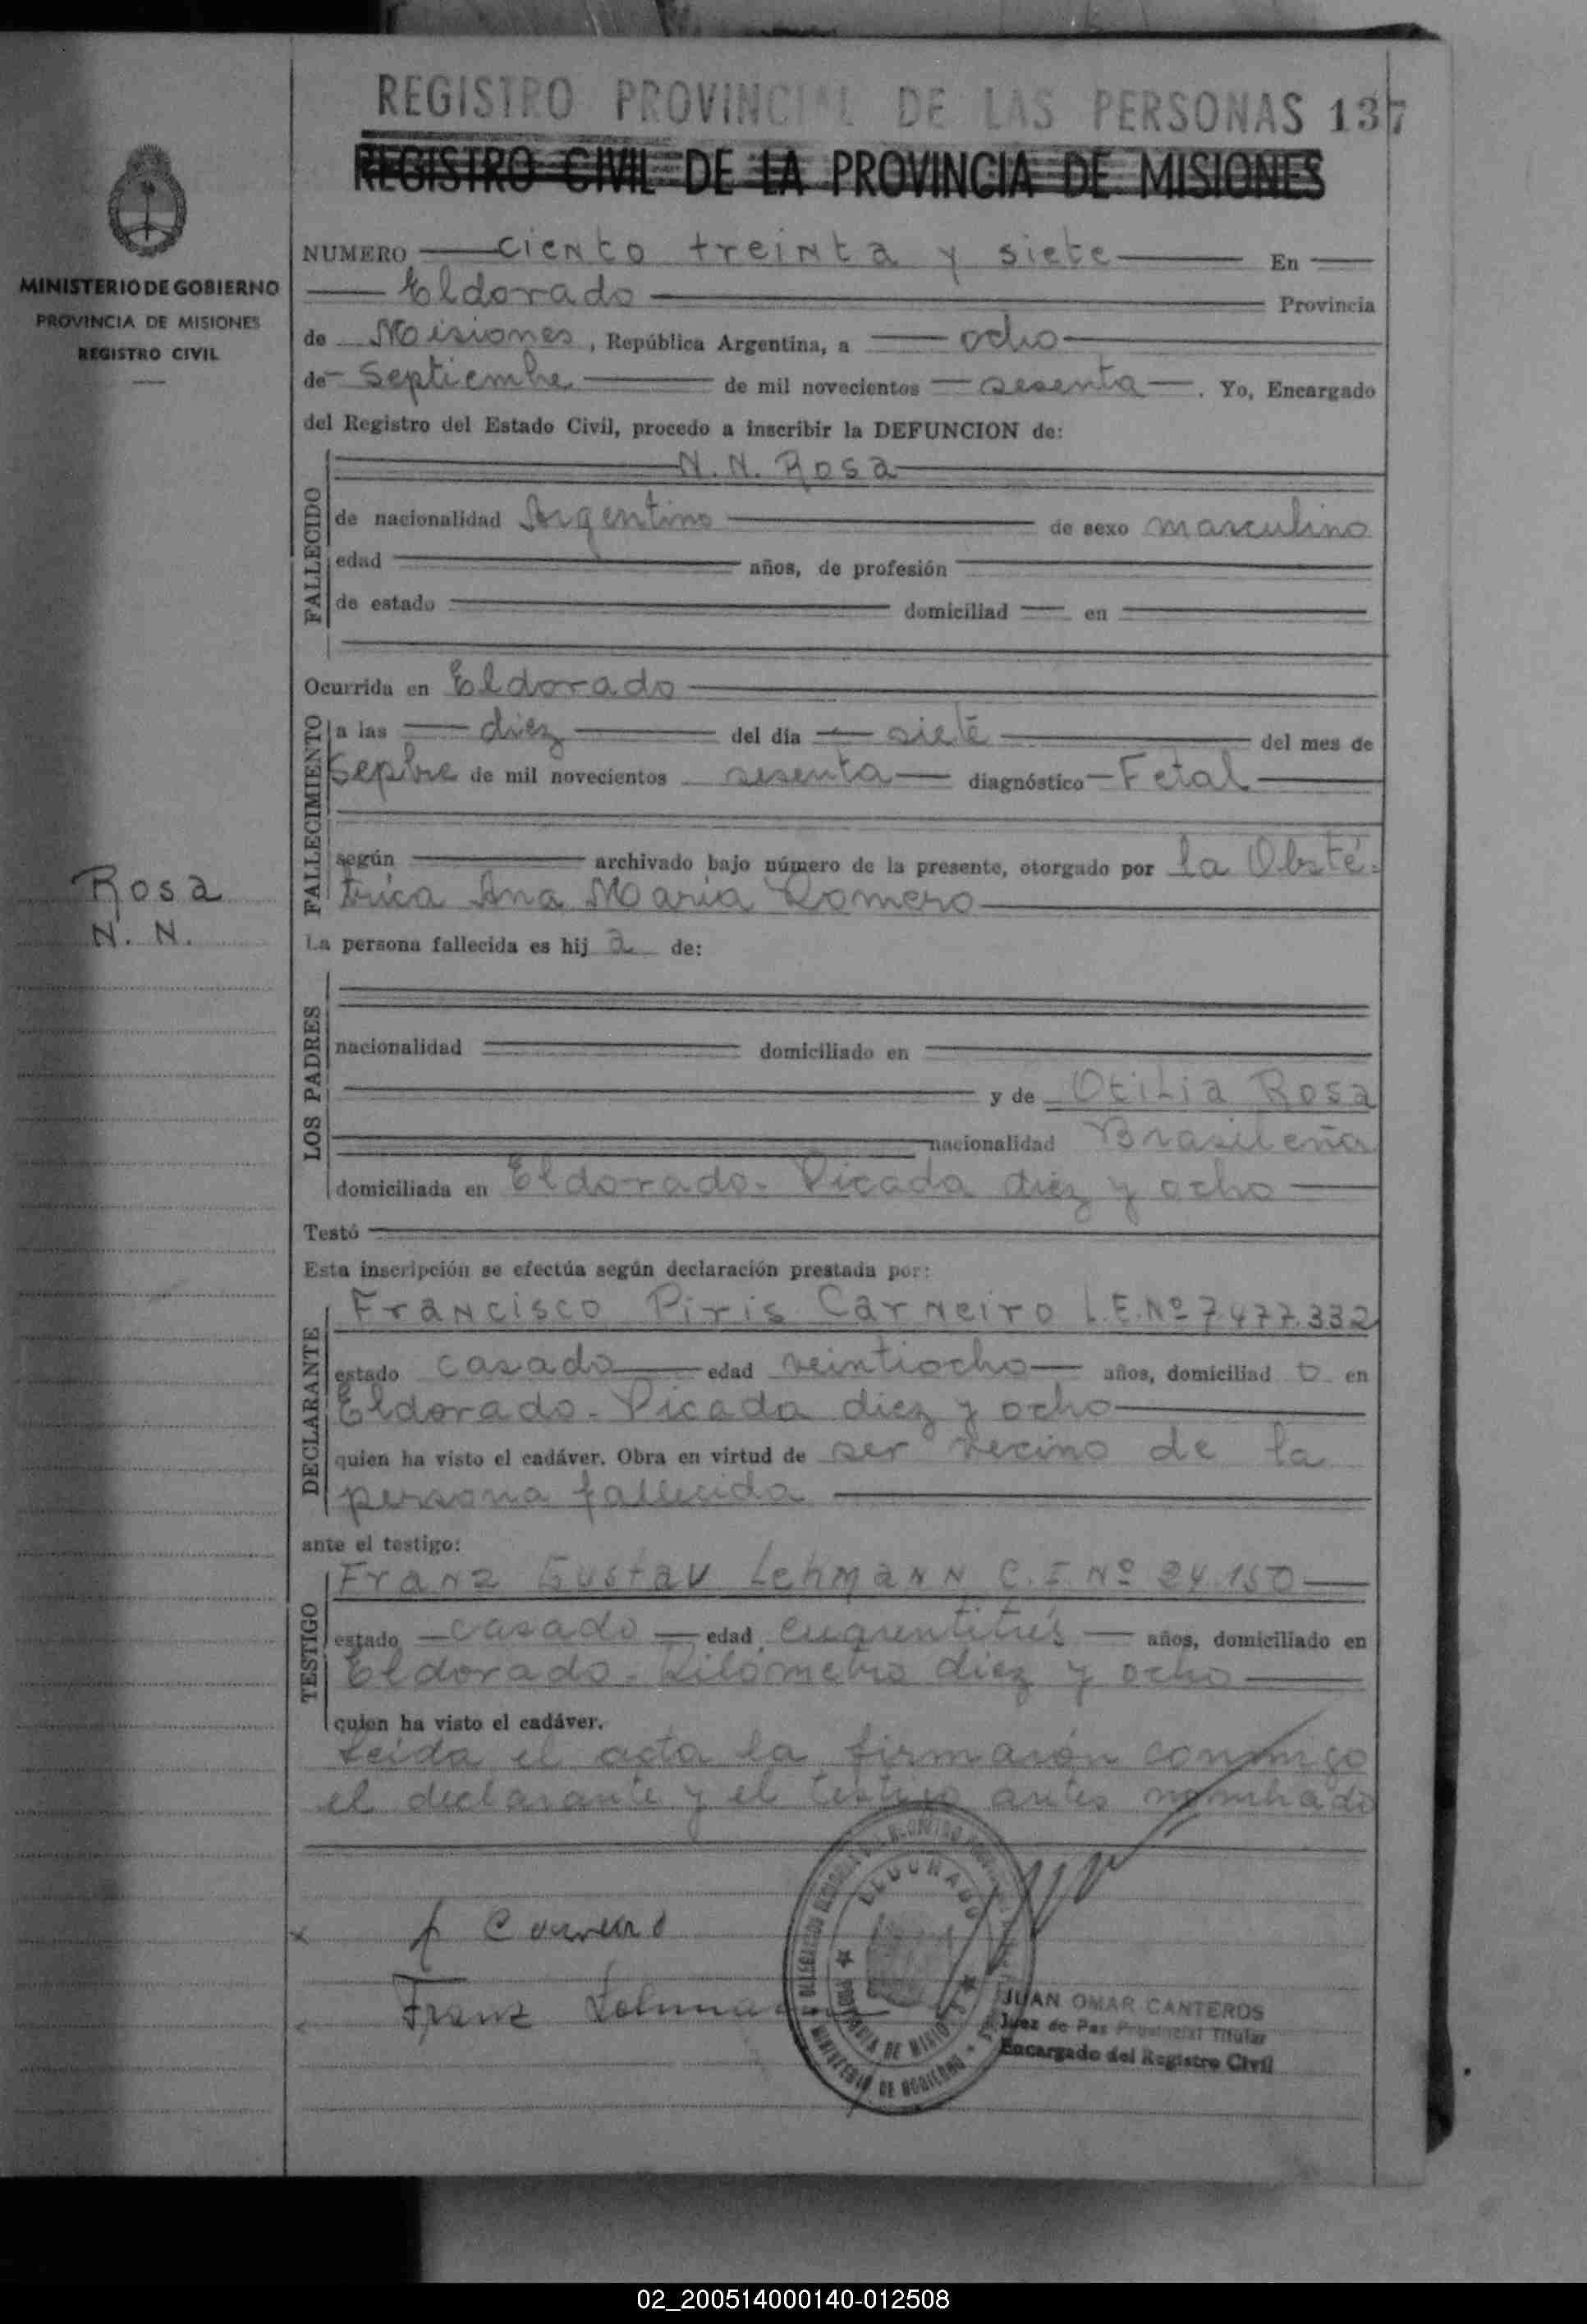 REGISTRO PROVINCIAL DE LAS PERSONAS 137
REGISTRO CIVIL DE LA PROVINCIA DE MISIONES
MINISTERIO DE GOBIERNO
PROVINCIA DE MISIONES
REGISTRO CIVIL
NUMERO ciento treinta y siete En
Eldorado Provincia
de Misiones, República Argentina, a ocho
de Septiembre de mil novecientos sesenta. Yo, Encargado
del Registro del Estado Civil, procedo a inscribir la DEFUNCION de:
FALLECIDO
N. N. Rosa
de nacionalidad Argentino de sexo masculino
edad años, de profesión
de estado domiciliad en
Ocurrida en Eldorado
FALLECIMIENTO
a las diez del día siete del mes de
Sepbre de mil novecientos sesenta diagnóstico Fetal
según archivado bajo número de la presente, otorgado por la Obsté-
trica Ana María Romero
Rosa
N. N.
La persona fallecida es hij a de:
LOS PADRES
nacionalidad domiciliado en
y de Otilia Rosa
nacionalidad Brasileña
domiciliada en Eldorado - Picada diez y ocho
Testó
Esta inscripción se efectúa según declaración prestada por:
DECLARANTE
Francisco Piris Carneiro L.E.Nº 7.477.332
estado casado edad veintiocho años, domiciliad o en
Eldorado - Picada diez y ocho
quien ha visto el cadáver. Obra en virtud de ser vecino de la
persona fallecida
ante el testigo:
TESTIGO
Franz Gustav Lehmann C.I. Nº 24.150
estado casado edad cuarentitrés años, domiciliado en
Eldorado - Kilómetro diez y ocho
quien ha visto el cadáver.
Leída el acta la firmarón conmigo
el declarante y el testigo antes nombrado
ELDORADO
PROVINCIA DE MISIONES
MINISTERIO DE GOBIERNO
Franz Lehmann
JUAN OMAR CANTEROS
Juez de Paz Provincial Titular
Encargado del Registro Civil
02_200514000140-012508